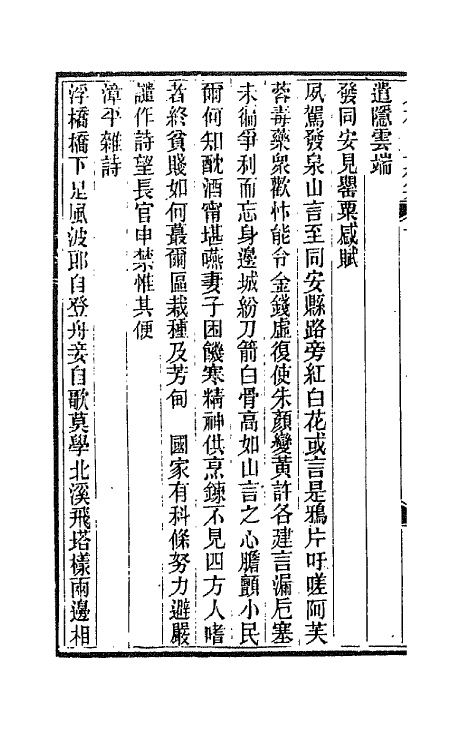 遺隱雲端
發同安見罌粟感賦
夙駕發泉山言至同安縣路旁紅白花或言是鴉片吁嗟阿芙
蓉毒藥衆歡忭能令金錢虛復使朱顏變黃許各建言漏巵塞
未徧爭利而忘身邊城紛刀箭白骨高如山言之心膽顫小民
爾何知酖酒甯堪嚥妻子困饑寒精神供烹鍊不見四方人嗜
者終貧賤如何蕞爾區栽種及芳甸　國家有科條努力避嚴
譴作詩望長官申禁惟其便
漳平雜詩
浮橋橋下足風波郎自登舟妾自歌莫學北溪飛塔樣兩邊相